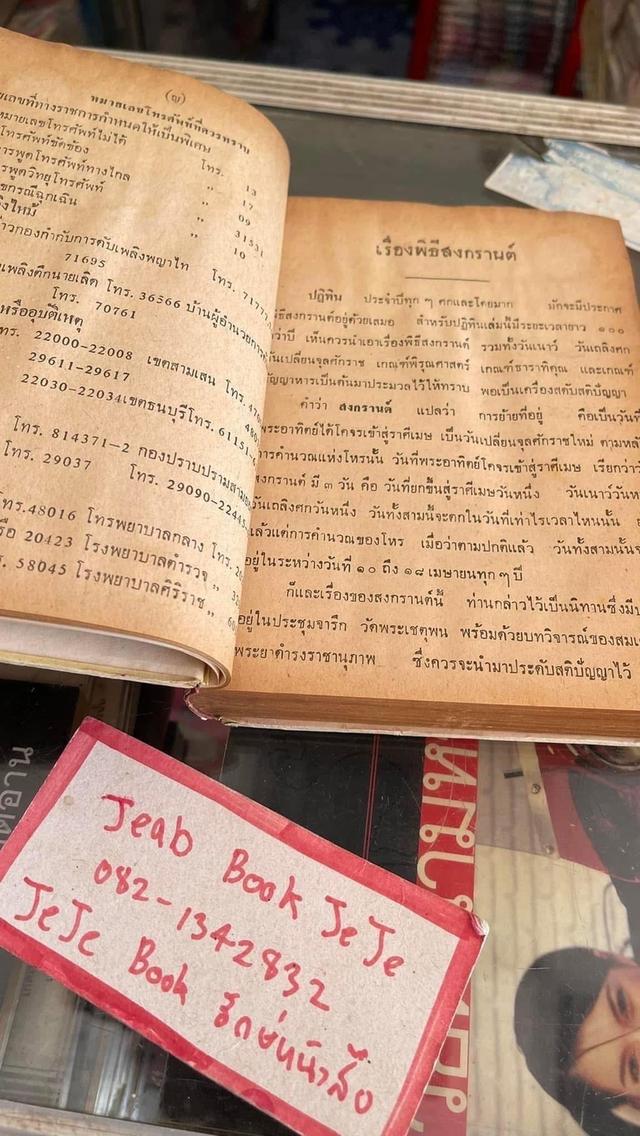 (ญ)
หมายเลขโทรศัพท์ที่ควรทราบ
ยเลขที่ทางราชการกำหนดให้เป็นพิเศษ
หมายเลขโทรศัพท์ไม่ได้ โทร. 13
โทรศัพท์ขัดข้อง " 17
การพูดโทรศัพท์ทางไกล " 09
ารพูดวิทยุโทรศัพท์ " 31531
ยกรณีฉุกเฉิน " 10
ลิงไหม้
าวกองกำกับการดับเพลิงพญาไท โทร. 71777
71695
เพลิงตึกนายเลิด โทร. 36566 บ้านผู้อำนวยการ
โทร. 70761
หรืออุบัติเหตุ
ทร. 22000-22008 เขตสามเสน โทร.
29611-29617
22030-22034 เขตธนบุรี โทร. 61151
โทร. 814371-2 กองปราบปรามสามยอด
. 29037 โทร. 29090-22445
โทร. 48016 โทรพยาบาลกลาง โทร.
รือ 20423 โรงพยาบาลตำรวจ "
. 58045 โรงพยาบาลศิริราช "
เรื่องพิธีสงกรานต์
ปฏิทิน ประจำปีทุก ๆ ศกและโดยมาก มักจะมีประกาศ
พิธีสงกรานต์อยู่ด้วยเสมอ สำหรับปฏิทินเล่มนี้มีระยะเวลายาว ๑๐๐
ว่าปี เห็นควรนำเอาเรื่องพิธีสงกรานต์ รวมทั้งวันเนาว์ วันเถลิงศก
วันเปลี่ยนจุลศักราช เกณฑ์พิรุณศาสตร์ เกณฑ์ธาราทิคุณ และเกณฑ์
ธัญญาหารเป็นต้นมาประมวลไว้ให้ทราบ พอเป็นเครื่องสดับสติปัญญา
คำว่า สงกรานต์ แปลว่า การย้ายที่อยู่ คือเป็นวันที่
พระอาทิตย์ได้โคจรเข้าสู่ราศีเมษ เป็นวันเปลี่ยนจุลศักราชใหม่ ตามหลัก
การคำนวณแห่งโหรนั้น วันที่พระอาทิตย์โคจรเข้าสู่ราศีเมษ เรียกว่าวั
สงกรานต์ มี ๓ วัน คือ วันที่ยกขึ้นสู่ราศีเมษวันหนึ่ง วันเนาว์วันห
วันเถลิงศกวันหนึ่ง วันทั้งสามนี้จะตกในวันที่เท่าไรเวลาไหนนั้น
แล้วแต่การคำนวณของโหร เมื่อว่าตามปกติแล้ว วันทั้งสามนั้นจะ
อยู่ในระหว่างวันที่ ๑๐ ถึง ๑๘ เมษายนทุก ๆ ปี
ก็และเรื่องของสงกรานต์นี้ ท่านกล่าวไว้เป็นนิทานซึ่งมีป
อยู่ในประชุมจารึก วัดพระเชตุพน พร้อมด้วยบทวิจารณ์ของสมเด
พระยาดำรงราชานุภาพ ซึ่งควรจะนำมาประดับสติปัญญาไว้
Jeab Book JeJe
082-1342832
JeJe Book รักษ์หนังสือ